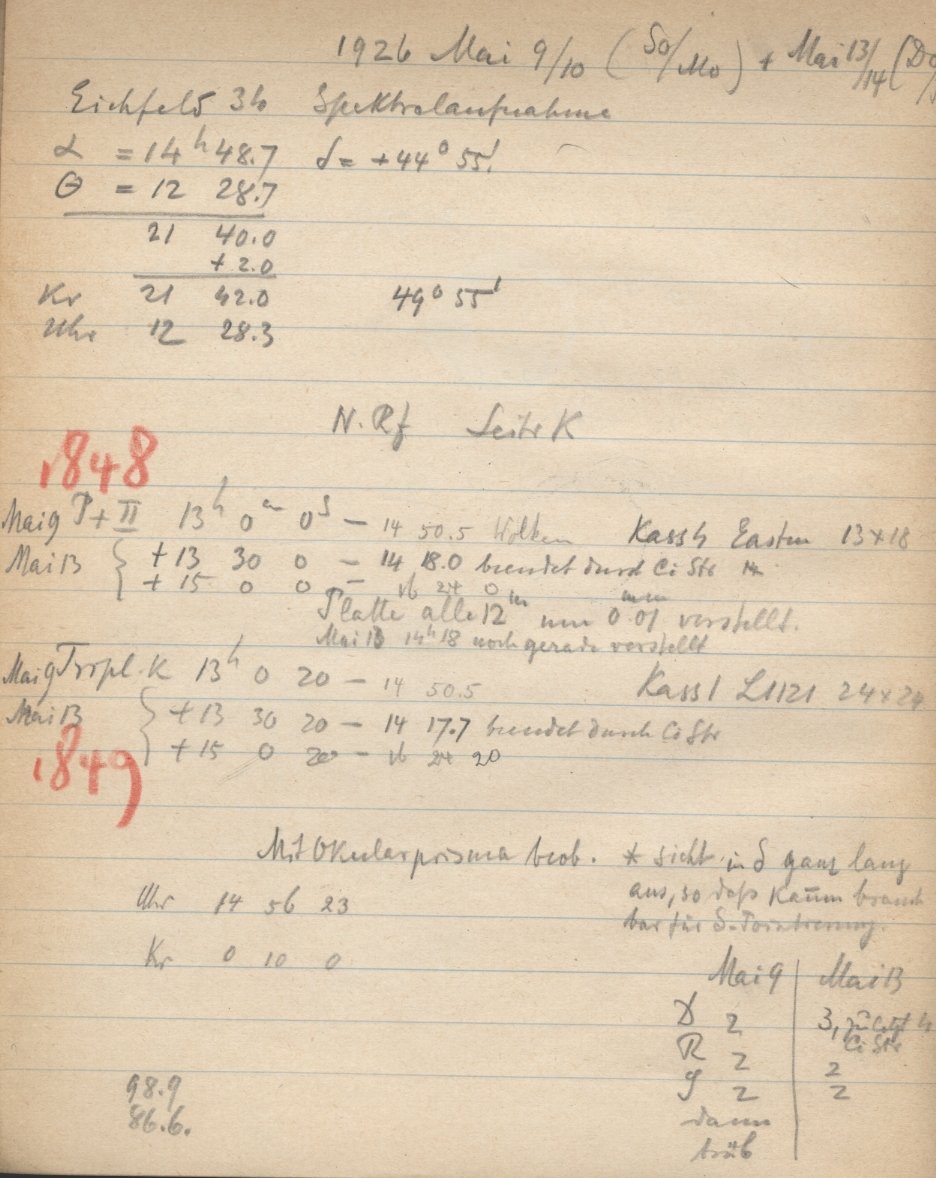 1926 Mai 9/10 (So/Mo) + Mai 13/14 (Do/
Eichfeld 36 Spektralaufnahme
α = 14h 48.7 δ = +44° 55'
Θ = 12 28.7
21 40.0
+ 2.0
Kr 21 42.0 44° 55'
Uhr 12 28.3
N. Rf Seite K
1848
Mai 9 P + II 13h 0m 0s — 14 50.5 Wolken Kass 4 Eastm 13×18
Mai 13 { + 13 30 0 — 14 18.0 beendet durch Ci Str
+ 15 0 0 — 16 24 0
Platte alle 12m um 0.01 mm verstellt.
Mai 13 14h18 noch gerade verstellt
Mai 9 Tripl. K 13h 0 20 — 14 50.5 Kass 1 L1121 24×24
Mai 13 { + 13 30 20 — 14 17.7 beendet durch Ci Str
+ 15 0 20 — 16 24 20
1849
Mit Okularprisma beob. * sieht in δ ganz lang
aus, so daß kaum brauch
bar für δ-Pointierung.
Uhr 14 56 23
Kr 0 10 0
Mai 9 | Mai 13
D 2 | 3, zuletzt 4
Ci Str
R 2 | 2
S 2 | 2
dann
trüb
98.9
86.6.